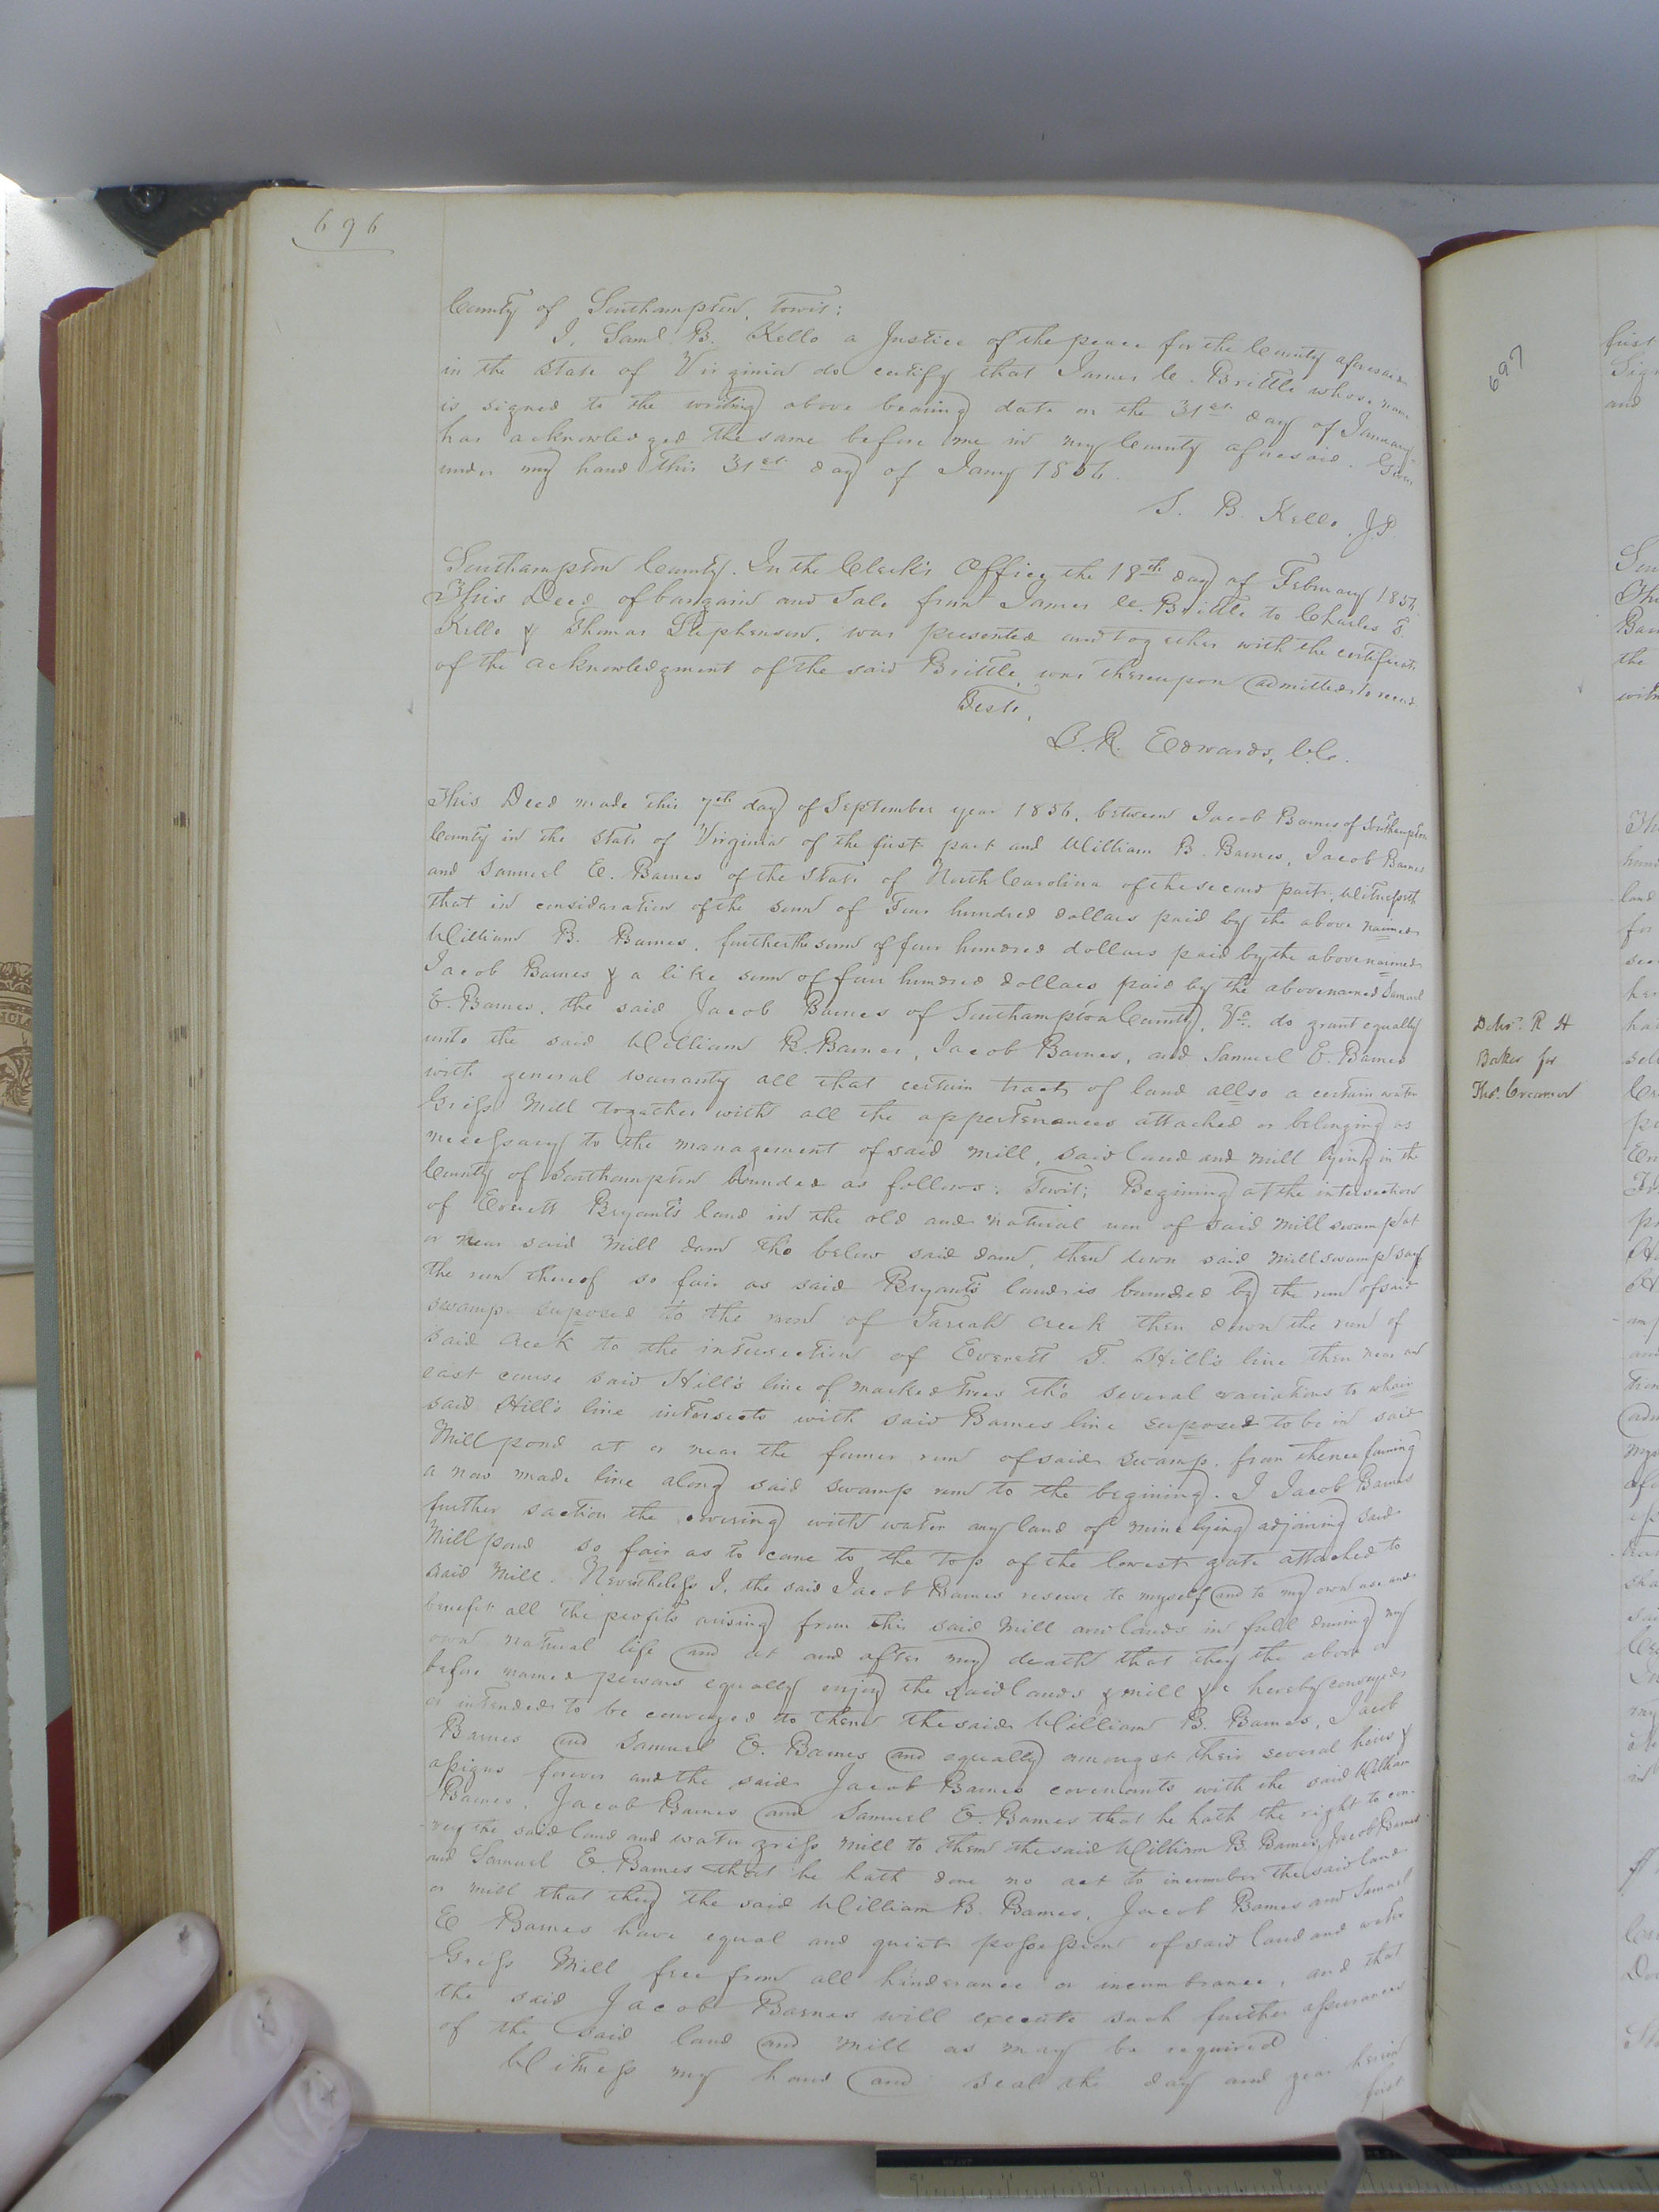 696
County of Southampton, Towit:
I, Saml B. Kello a Justice of the peace for the County aforesaid
in the State of Virginia do certify that James C. Brittle whose name
is signed to the writing above bearing date on the 31st day of January
has acknowledged the same before me in my County aforesaid. Given
under my hand this 31st day of Jany 1856.
S. B. Kello, J.P.
Southampton County. In the Clerk's Office the 18th day of February 1856
This Deed of bargain and Sale from James C. Brittle to Charles F.
Kello & Thomas Stephenson, was presented and together with the certificate
of the acknowledgment of the said Brittle, was thereupon admitted to record.
Teste,
L. R. Edwards, C.C.
This Deed made this 7th day of September year 1856, between Jacob Barnes of Southampton
County in the State of Virginia of the first part and William B. Barnes, Jacob Barnes
and Samuel E. Barnes of the State of North Carolina of the second part, Witnesseth
that in consideration of the sum of Four hundred dollars paid by the above naimed
William B. Barnes, further the sum of four hundred dollars paid by the above naimed
Jacob Barnes & a like sum of four hundred dollars paid by the above named Samuel
E. Barnes, the said Jacob Barnes of Southampton County, Va. do grant equally
unto the said William B. Barnes, Jacob Barnes, and Samuel E. Barnes
with general warranty all that certain tract of land allso a certain water
Griss Mill together with all the appertenances attached or belonging as
necessary to the management of said mill, said land and mill lying in the
County of Southampton bounded as follows: Towit; Begining at the intersection
of Everett Bryant's land in the old and natural run of said mill swamp at
or near said mill dam tho below said dam, then down said mill swamp say
the run thereof so fair as said Bryant's land is bounded by the run of said
swamp suposed to the run of Tarrah Creek then down the run of
said creek to the intersection of Everett T. Hill's line then near an
east course said Hill's line of marked trees tho several variations to whair
said Hill's line intersects with said Barnes line suposed to be in said
Mill pond at or near the former run of said swamp, from thence forming
a now made line along said swamp run to the begining. I Jacob Barnes
further saction the covering with water any land of mine lying adjoining said
Mill pond so fair as to come to the top of the lowest gate attached to
said Mill. Nevertheless I, the said Jacob Barnes reserve to myself and to my own use and
benefit all the profits arising from this said Mill and lands in full during my
own natural life and at and after my death that they the above or
before named persons equally enjoy the said lands & mill &c hereby conveyed
or intended to be conveyed to them the said William B. Barnes, Jacob
Barnes and Samuel E. Barnes and equally amongst their several heirs &
assigns forever and the said Jacob Barnes covenants with the said William
Barnes, Jacob Barnes and Samuel E. Barnes that he hath the right to con-
-vey the said land and water griss mill to them the said William B. Barnes, Jacob Barnes
and Samuel E. Barnes that he hath done no act to incumber the said land
or mill that they the said William B. Barnes, Jacob Barnes and Samuel
E Barnes have equal and quiet possession of said land and water
Griss Mill free from all hinderance or incumbrance, and that
the said Jacob Barnes will execute such further assurances
of the said land and mill as may be required
Witness my hand and seal the day and year herein
first
697
Delv. R H
Baker for
first
and
the
land
for